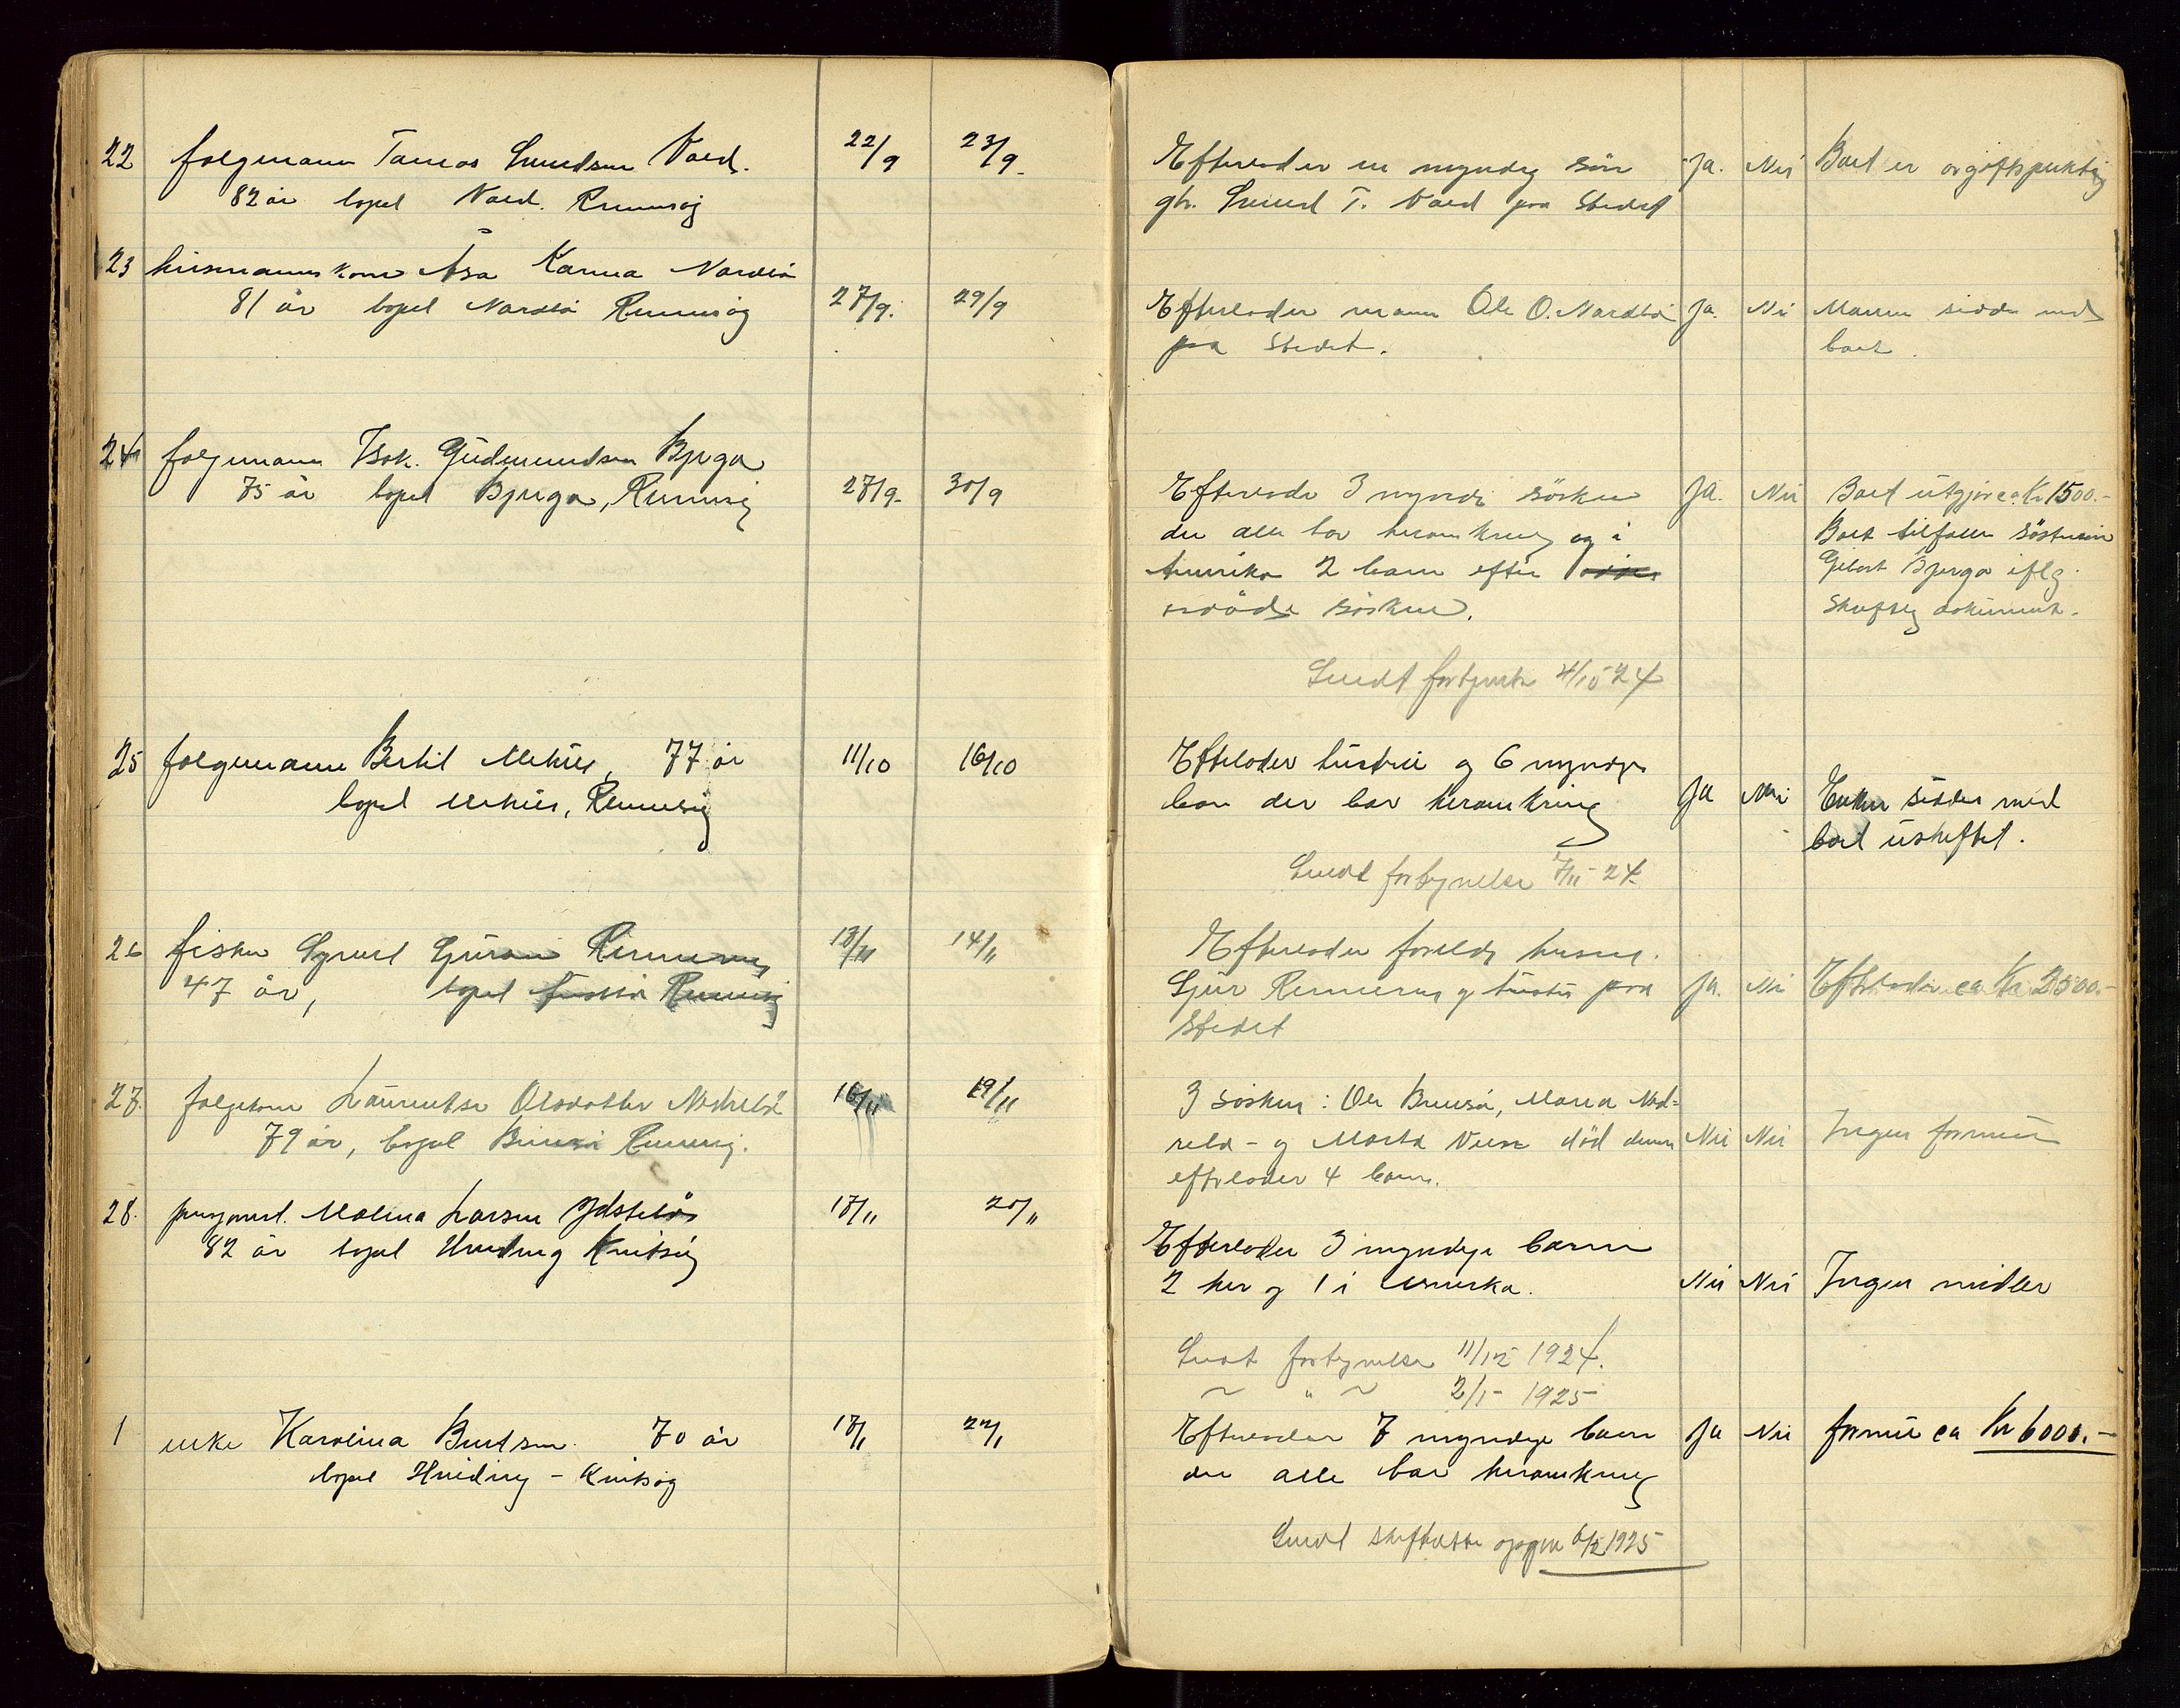 22 folgemann Tamas Svendsen Voed. 22/9 23/9
82 år bopel Voed. Rennesøy
Efterlader en myndig søn Ja. Nei Boet er avgiftspliktig
gb. Svend T. Voed paa Stedet
23 husmannskone Åsa Karina Nordbø
81 år bopel Nordbø Rennesøy 27/9. 29/9
Efterlader mann Ole O. Nordbø Ja. Nei Mannen sidder med
paa Stedet. boet.
24 folgemann Isak. Gudmundsen Bjerga
75 år bopel Bjerga, Rennesøy 27/9. 30/9
Efterlader 3 myndige søsken Ja. Nei Boet utgjør ca. Kr 1500.-
der alle bor heromkring og i Boet tilfaller søstersøn
Amerika 2 barn efter Bjerga iflg.
avdøde søsken. dokument.
Sendt fortegnelse 4/10-24
25 folgemann Bertil Mehus, 77 år 11/10 16/10
bopel Mehus, Rennesøy
Efterlader hustru og 6 myndige
barn der bor heromkring Ja Nei Enken sidder med
boet uskiftet.
Sendt fortegnelse 7/11-24.
26 fisker Sjuersen Rennesøy 13/11 14/11
47 år, bopel Rennesøy
Efterlader foreldre husm.
Sjur Rennesøy og hustru paa Ja. Nei Efterlader ca Kr 2500.-
Stedet
27. folgekone Lauentse Olsdatter Nedrebø 16/11 19/11
79 år, bopel Rennesøy.
3 søsken: Ole, Maria Ned=
rebø - og Marta død denne Nei Nei Ingen formue
efterlader 4 barn.
28. Malena Larsen 17/11 20/11
82 år bopel Hvidding Kvitsøy
Efterlader 3 myndige barn
2 her og 1 i Amerika. Nei Nei Ingen midler
Sendt fortegnelse 11/12 1924.
~ " ~ 2/1- 1925
1 enke Karolina Bentsen. 70 år 17/1 22/1
bopel Hvidding - Kvitsøy
Efterlader 7 myndige barn Ja Nei formue ca Kr 6000.-
der alle bor heromkring
Sendt skifteretten opgave 6/2 1925